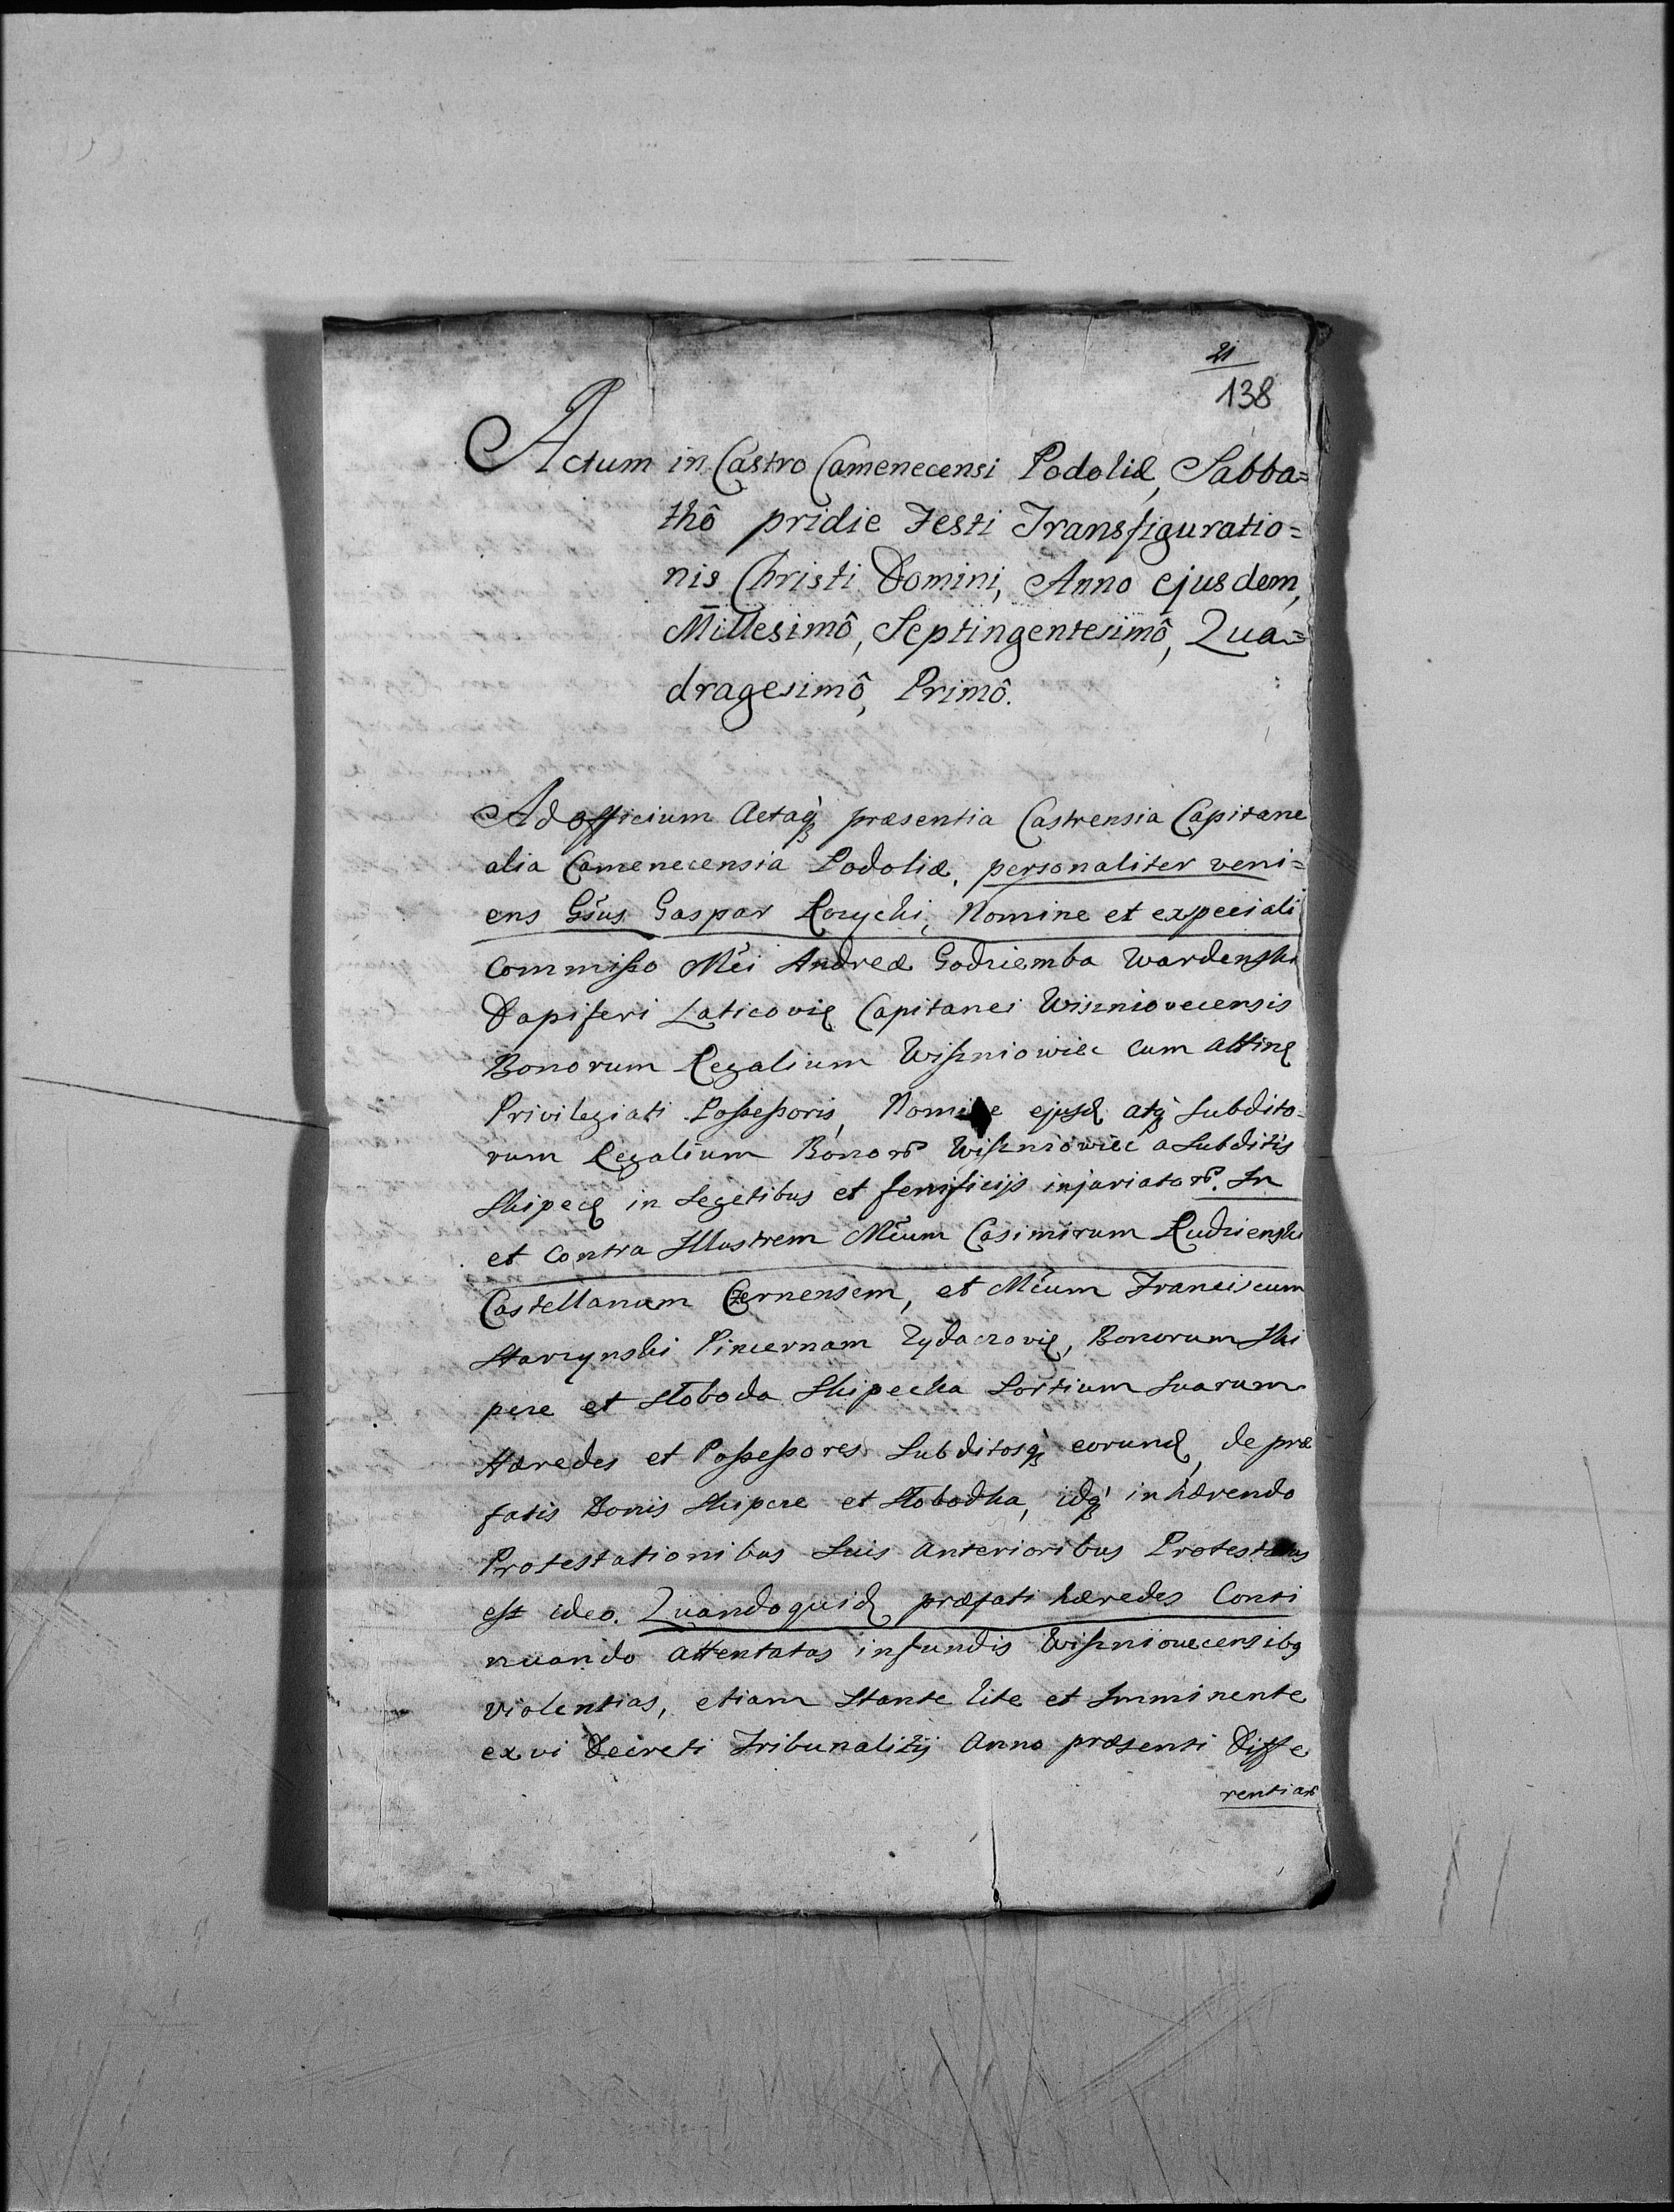 21
138
Actum in Castro Camenecensi Podoliæ, Sabba=
thô pridie Festi Transfiguratio=
nis Christi Domini, Anno ejusdem,
Millesimô, Septingentesimô, Qua=
dragesimô, Primô.
Ad officium Actaq́ præsentia Castrensia Capitane
alia Camenecensia Podoliæ, personaliter veni=
ens Gsus Gaspar Rozycki, Nomine et expeciali
Commisso Mci Andreæ Godziemba Wardenski
Dapiferi Laticovię Capitanei Wiszniovecensis
Bonorum Regalium Wiszniowiec cum Attinę
Privilegiati Possessoris, Nomine ejusd atq́ Subdito=
rum Regalium Bonor Wiszniowiec a Subditis
Skipecę in Segetibus et fenificijs injuriator. In
et Contra Illustrem Mcum Casimirum Rudzienski
Castellanum Czernensem, et Mcum Franciscum
Starzynski Pincernam Zydaczovię, Bonorum Ski
pcze et Sloboda Skipecka Sortium Suarum
Hæredes et Possessores Subditosq́ eorund, de præ
fatis Bonis Skipcze et Slobodka, idq́ inhærendo
Protestationibus Suis Anterioribus Protestatus
est ideo. Quandoquid præfati hæredes Conti
nuando Attentatas in fundis Wiszniovecensibq
violentias, etiam Stante lite et Imminente
ex vi Decreti Tribunalitij Anno præsenti Diffe
rentiar